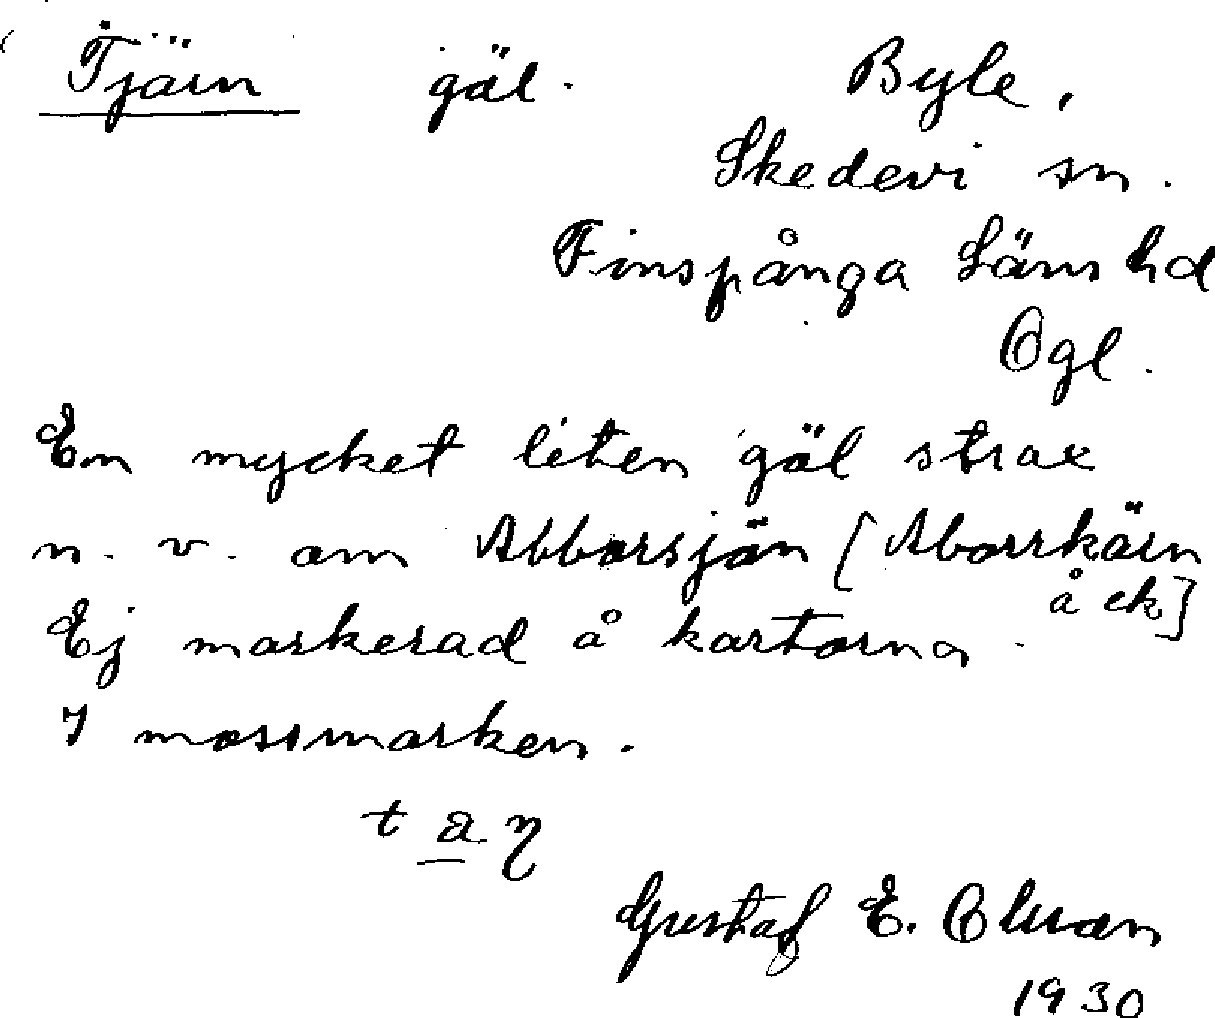 Tjärn gäl. Byle,
Skedevi sn.
Finspånga Läns hd
Ögl.
En mycket liten gäl strax
n. v. om Abborsjön [Aborrkärn
å ek]
Ej markerad å kartorna.
I mossmarken.
Gustaf E. Olsson
1930